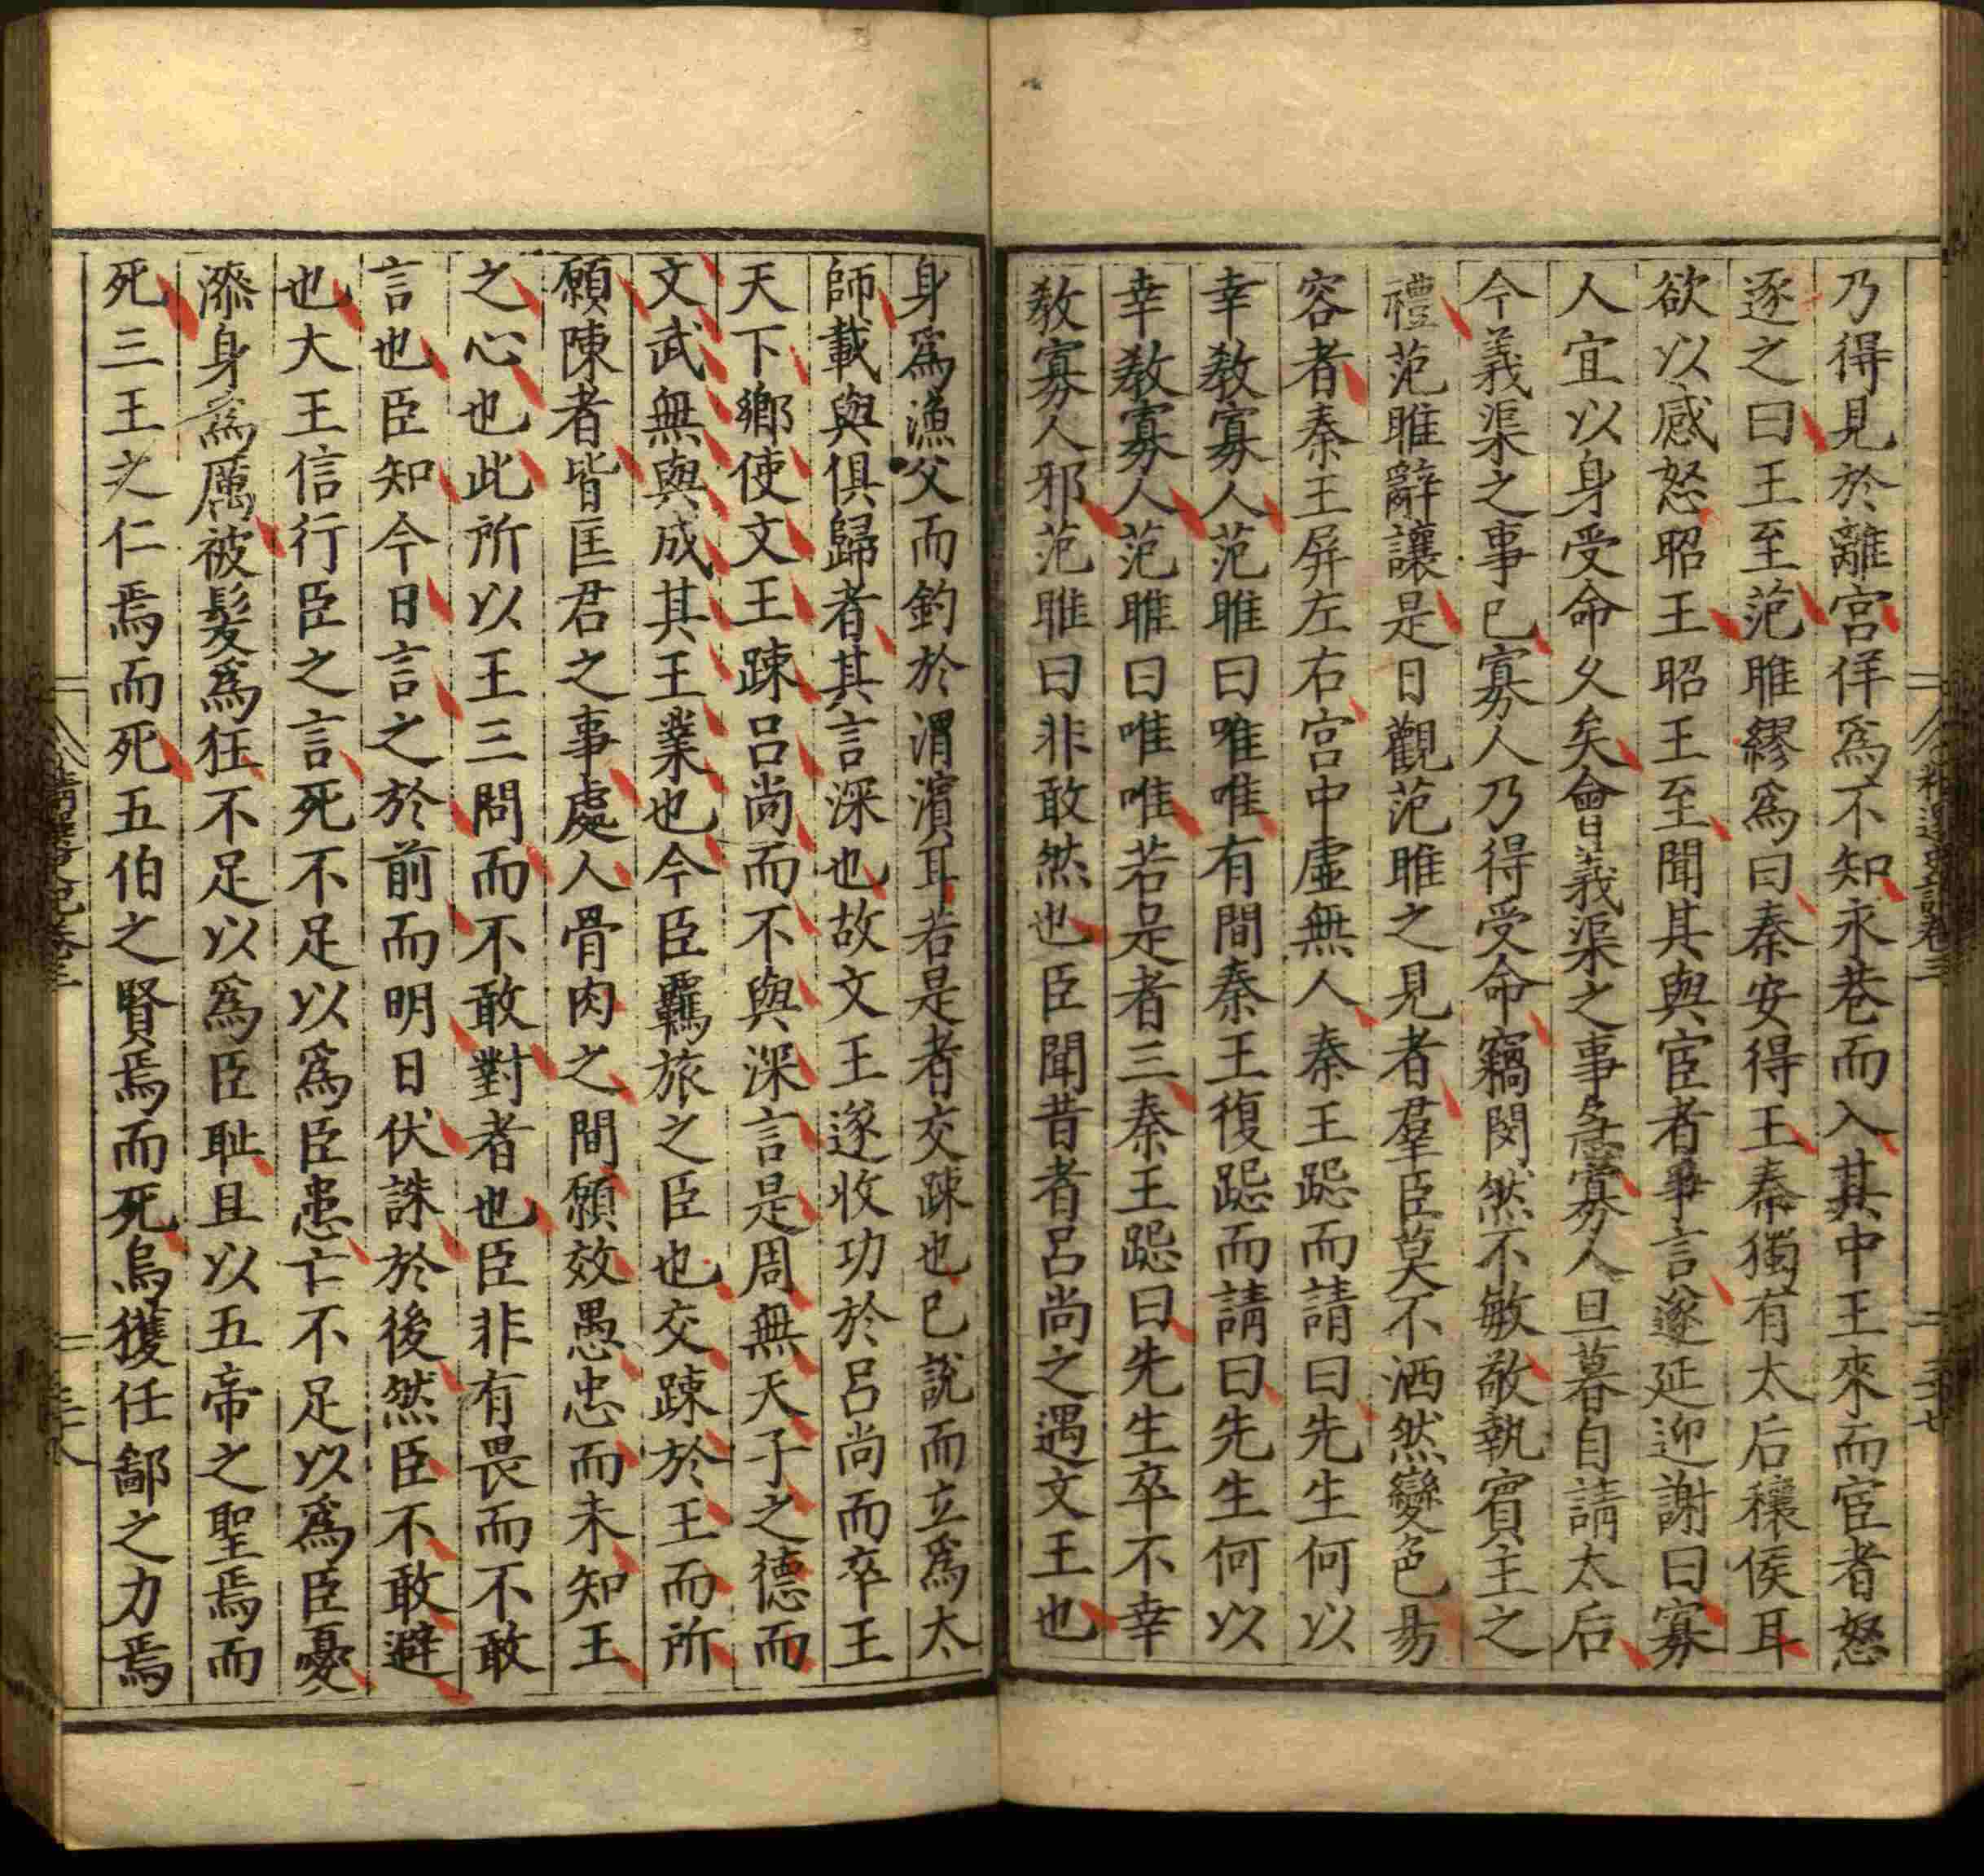 乃得見於離宮佯爲不知永巷而入其中王來而宦者怒
逐之曰王至范睢繆爲曰秦安得王秦獨有太后穰侯耳
欲以感怒昭王昭王至聞其與宦者爭言遂延迎謝曰寡
人宜以身受命久矣會義渠之事急寡人旦暮自請太后
今義渠之事已寡人乃得受命竊閔然不敏敬執賓主之
禮范睢辭讓是日觀范睢之見者羣臣莫不洒然變色易
容者秦王屏左右宮中虛無人秦王跽而請曰先生何以
幸教寡人范睢曰唯唯有間秦王復跽而請曰先生何以
幸教寡人范睢曰唯唯若是者三秦王跽曰先生卒不幸
教寡人邪范睢曰非敢然也臣聞昔者呂尚之遇文王也
身爲漁父而釣於渭濱耳若是者交踈也已說而立爲太
師載與俱歸者其言深也故文王遂收功於呂尚而卒王
天下鄉使文王踈呂尚而不與深言是周無天子之德而
文武無與成其王業也今臣羈旅之臣也交踈於王而所
願陳者皆匡君之事處人骨肉之間願效愚忠而未知王
之心也此所以王三問而不敢對者也臣非有畏而不敢
言也臣知今日言之於前而明日伏誅於後然臣不敢避
也大王信行臣之言死不足以爲臣患亡不足以爲臣憂
漆身爲厲被髮爲狂不足以爲臣恥且以五帝之聖焉而
死三王之仁焉而死五伯之賢焉而死烏獲任鄙之力焉